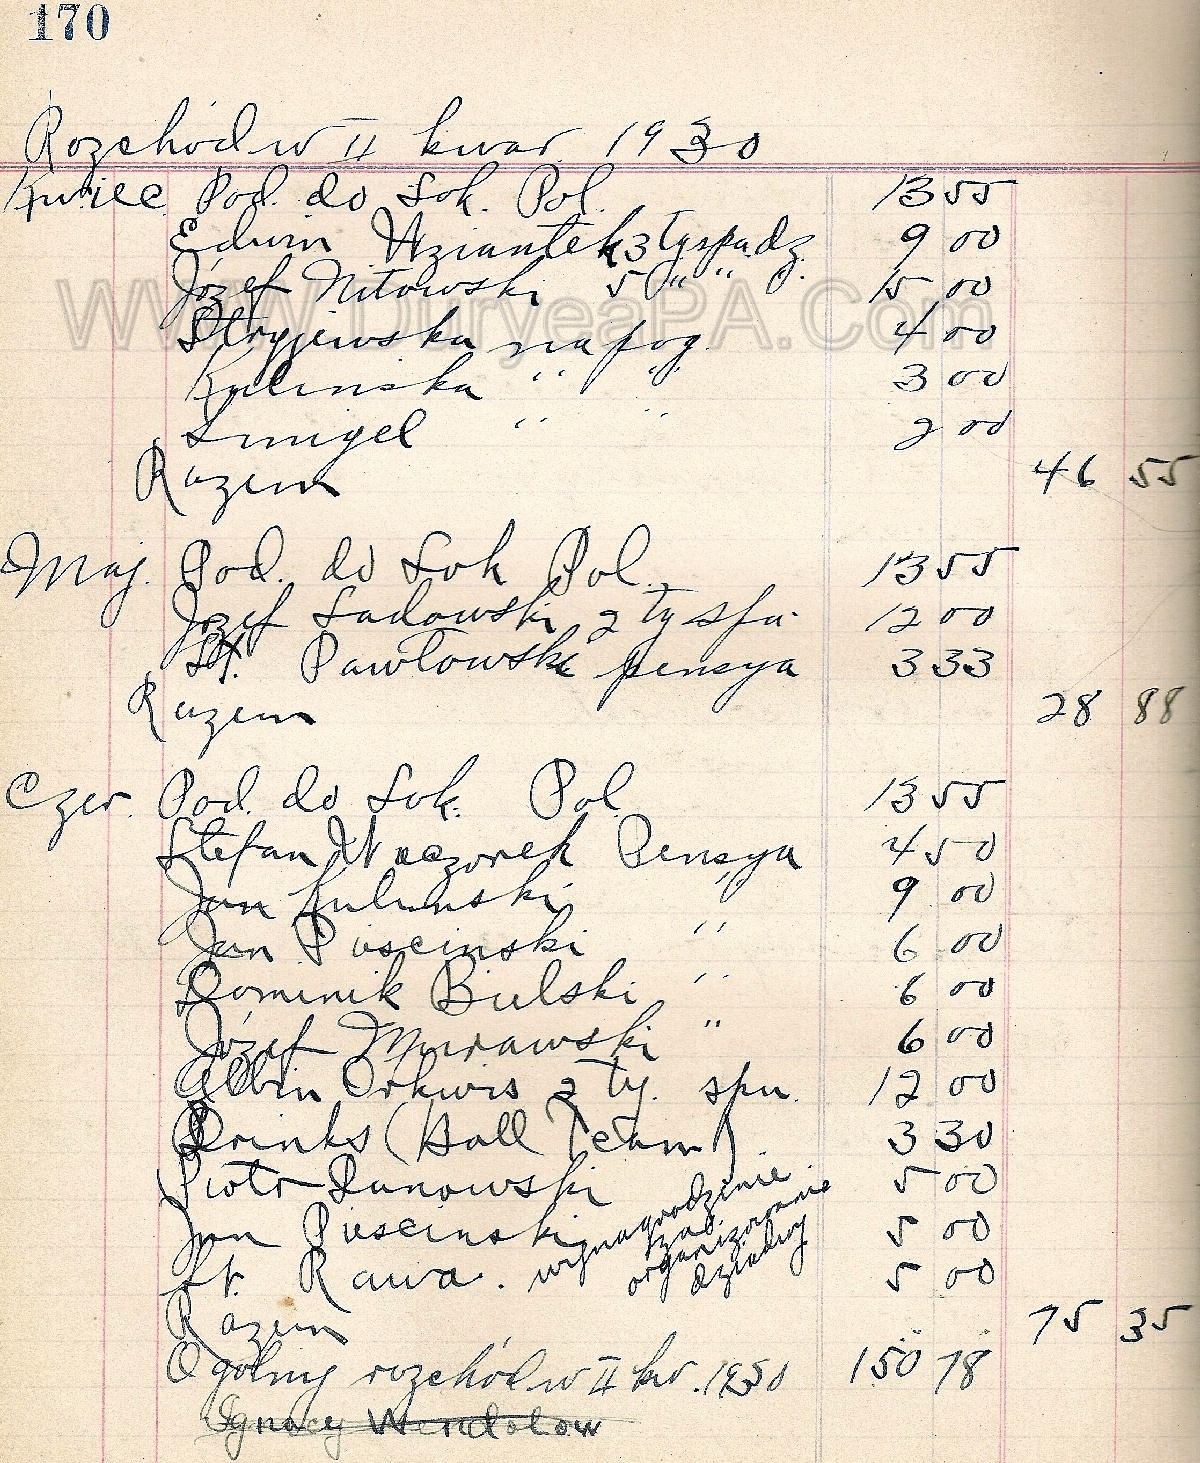 170
Rozchód w II kwar. 1930
Kwiec Pod. do Sok. Pol. 13 55
Edwin Wziantek 3 ty spadz. 9 00
Józef Nitowski 5 " " 15 00
WWW.DuryeaPA.Com
Stryjewska na pog. 4 00
Kulinska " " 3 00
Smigel " " 2 00
Razem 46 55
Maj. Pod. do Sok Pol. 13 55
Józef Sadowski 2 ty spa 12 00
St. Pawlowski pensya 3 33
Razem 28 88
Czer. Pod. do Sok. Pol. 13 55
Stefan Waczorek Pensya 4 50
Jan " 9 00
Jan Piescinski " 6 00
Dominik Bielski " 6 00
Józef Murawski " 6 00
Albin Orkwis 2 ty. spa. 12 00
Drinks (Hall Team) 3 30
Piotr Danowski 5 00
Jan Piescinski 5 00
St. Rawa. 5 00
wynagrodzenie
za
organizowanie
dziadwy
Razem 75 35
Ogólny rozchód w II kw. 1930 150 78
Ignacy Wendolow